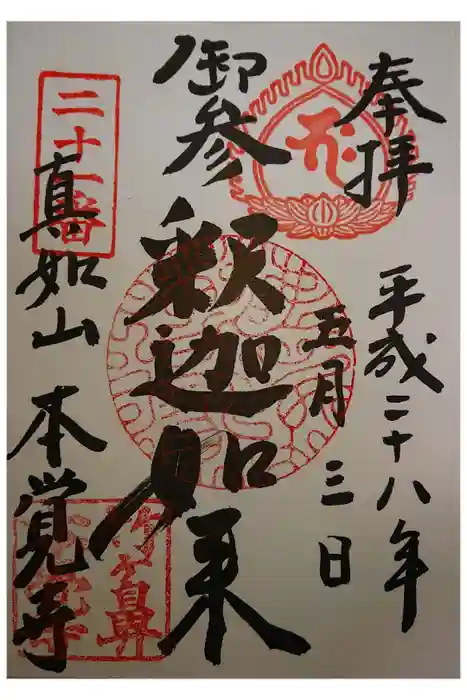 奉拝
平成二十八年
五月三日
御参
釈迦如来
二十一番
真如山 本覚寺
竹ヶ鼻